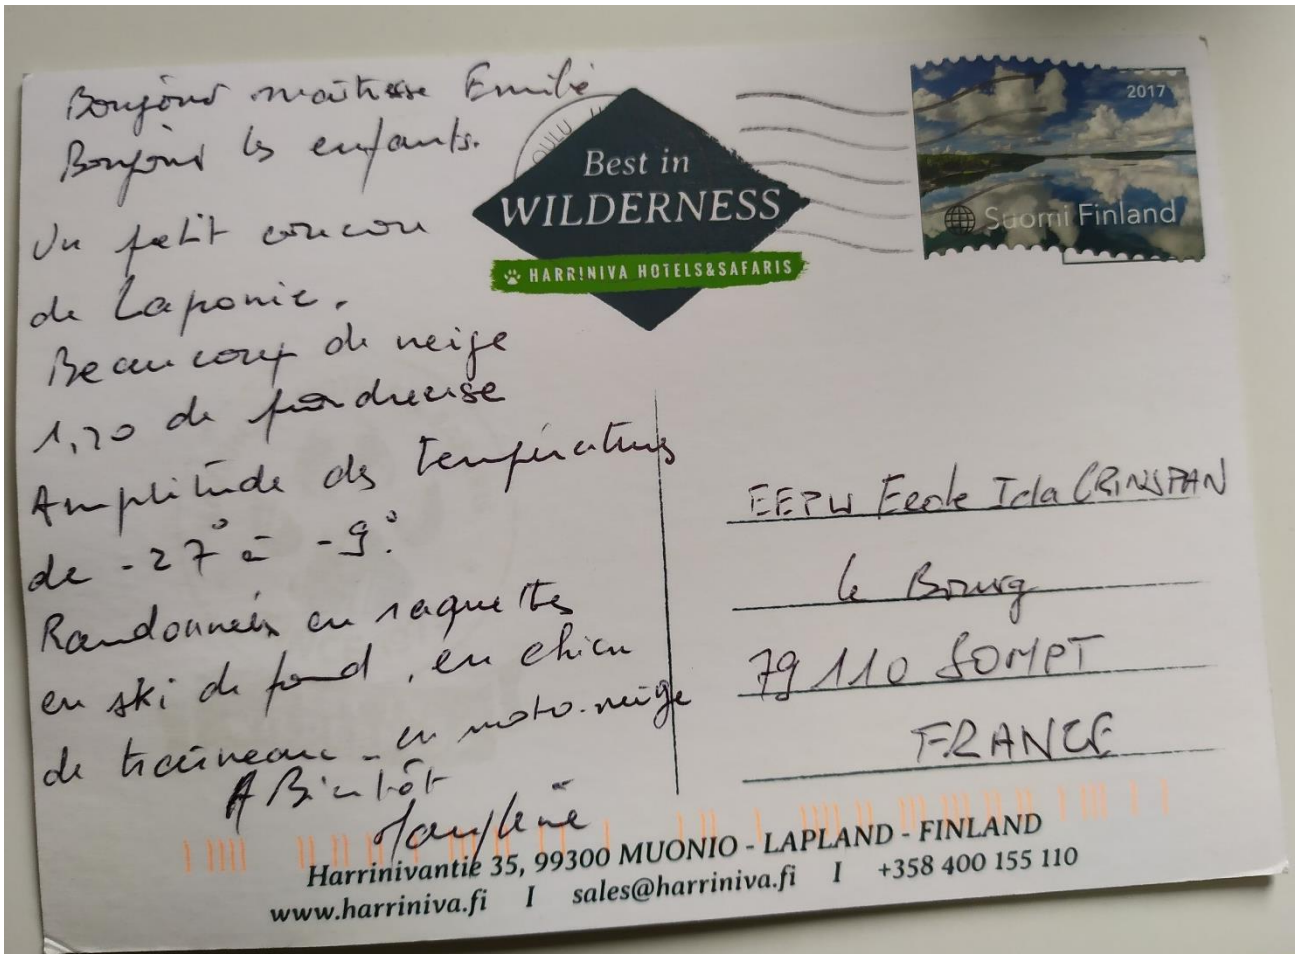 Bonjour maîtresse Emilie
Bonjour les enfants.
Un petit coucou
de Laponie.
Beaucoup de neige
1,20 de poudreuse
Amplitude des températures
de -27° à -9°.
Randonnées en raquettes
en ski de fond, en chien
de traineau - en moto-neige
A Bientôt
OULU
Best in
WILDERNESS
HARR!NIVA HOTELS&SAFARIS
2017
Suomi Finland
Ecole Ida GRINSPAN
le Bourg
79110 SOMPT
FRANCE
Harrinivantie 35, 99300 MUONIO - LAPLAND - FINLAND
www.harriniva.fi I sales@harriniva.fi I +358 400 155 110